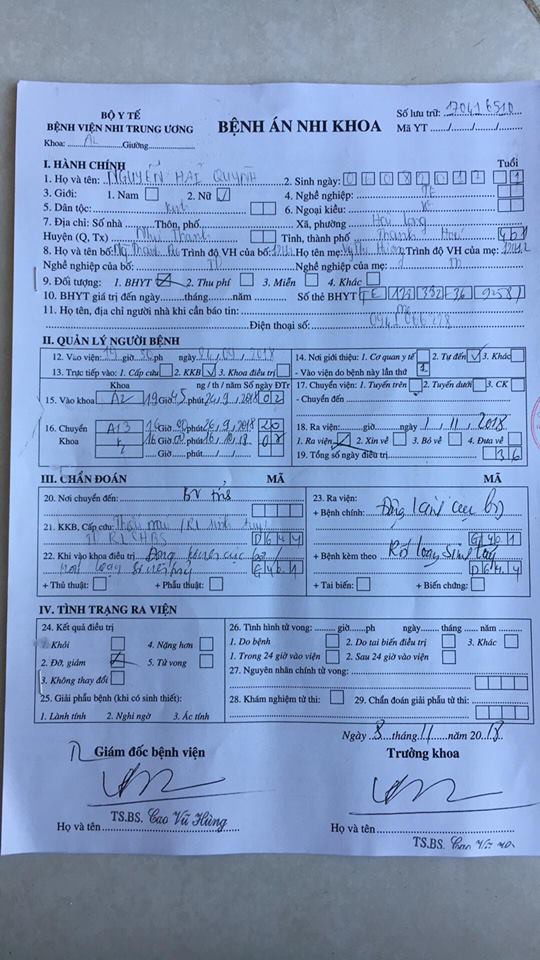 BỘ Y TẾ
BỆNH VIỆN NHI TRUNG ƯƠNG
Khoa: A2 Giường:
BỆNH ÁN NHI KHOA
Số lưu trữ: 17041 6510
Mã YT ....../....../....../......
I. HÀNH CHÍNH Tuổi
1. Họ và tên: NGUYỄN HẢI QUỲNH 2. Sinh ngày: 1
3. Giới: 1. Nam 2. Nữ 4. Nghề nghiệp: TE
5. Dân tộc: Kinh 6. Ngoại kiều:
7. Địa chỉ: Số nhà Thôn, phố Xã, phường Hải Long
Huyện (Q, Tx) Như Thanh Tỉnh, thành phố Thanh Hoá
8. Họ và tên bố: Trình độ VH của bố: 12/12 Họ tên mẹ: Trình độ VH của mẹ: 12/12
Nghề nghiệp của bố: TD Nghề nghiệp của mẹ: TD
9. Đối tượng: 1. BHYT 2. Thu phí 3. Miễn 4. Khác
10. BHYT giá trị đến ngày......tháng......năm...... Số thẻ BHYT TE
11. Họ tên, địa chỉ người nhà khi cần báo tin: mẹ
Điện thoại số:
II. QUẢN LÝ NGƯỜI BỆNH
12. Vào viện: 19 giờ 30 ph ngày 24/09/2018 14. Nơi giới thiệu: 1. Cơ quan y tế 2. Tự đến 3. Khác
13. Trực tiếp vào: 1. Cấp cứu 2. KKB 3. Khoa điều trị - Vào viện do bệnh này lần thứ 1
Khoa ng / th / năm Số ngày ĐTr 17. Chuyển viện: 1. Tuyến trên 2. Tuyến dưới 3. CK
15. Vào khoa A2 19 Giờ 45 phút 24/9/2018 02 - Chuyển đến
16. Chuyển Khoa A13 Giờ phút 26/9/2018 20 18. Ra viện: giờ ngày 1/11/2018
16 Giờ phút 16/10/18 1. Ra viện 2. Xin về 3. Bỏ về 4. Đưa về
Giờ phút ..../..../.... 19. Tổng số ngày điều trị 36
III. CHẨN ĐOÁN MÃ MÃ
20. Nơi chuyển đến: 23. Ra viện:
+ Bệnh chính: Động kinh cục bộ
21. KKB, Cấp cứu: Thiếu máu / RL sinh tuỷ
D 6 4 4 G 4 0 1
22. Khi vào khoa điều trị Động kinh cục bộ / + Bệnh kèm theo Rối loạn Sinh tủy
rối loạn sinh tuỷ G 4 0 1 D 6 4 4
+ Thủ thuật: + Phẫu thuật: + Tai biến: + Biến chứng:
IV. TÌNH TRẠNG RA VIỆN
24. Kết quả điều trị 26. Tình hình tử vong: ......giờ......ph ngày......tháng......năm......
1. Khỏi 4. Nặng hơn 1. Do bệnh 2. Do tai biến điều trị 3. Khác
2. Đỡ, giảm 5. Tử vong 1. Trong 24 giờ vào viện 2. Sau 24 giờ vào viện
3. Không thay đổi 27. Nguyên nhân chính tử vong:
25. Giải phẫu bệnh (khi có sinh thiết): 28. Khám nghiệm tử thi: 29. Chẩn đoán giải phẫu tử thi:
1. Lành tính 2. Nghi ngờ 3. Ác tính
Ngày 8 tháng 11 năm 2018
Giám đốc bệnh viện Trưởng khoa
TS.BS. Cao Vũ Hùng
Họ và tên Họ và tên
TS.BS. Cao Vũ